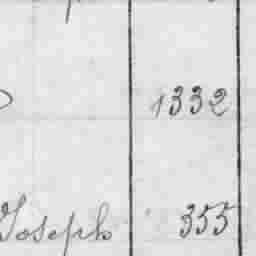 1332
Joseph 355